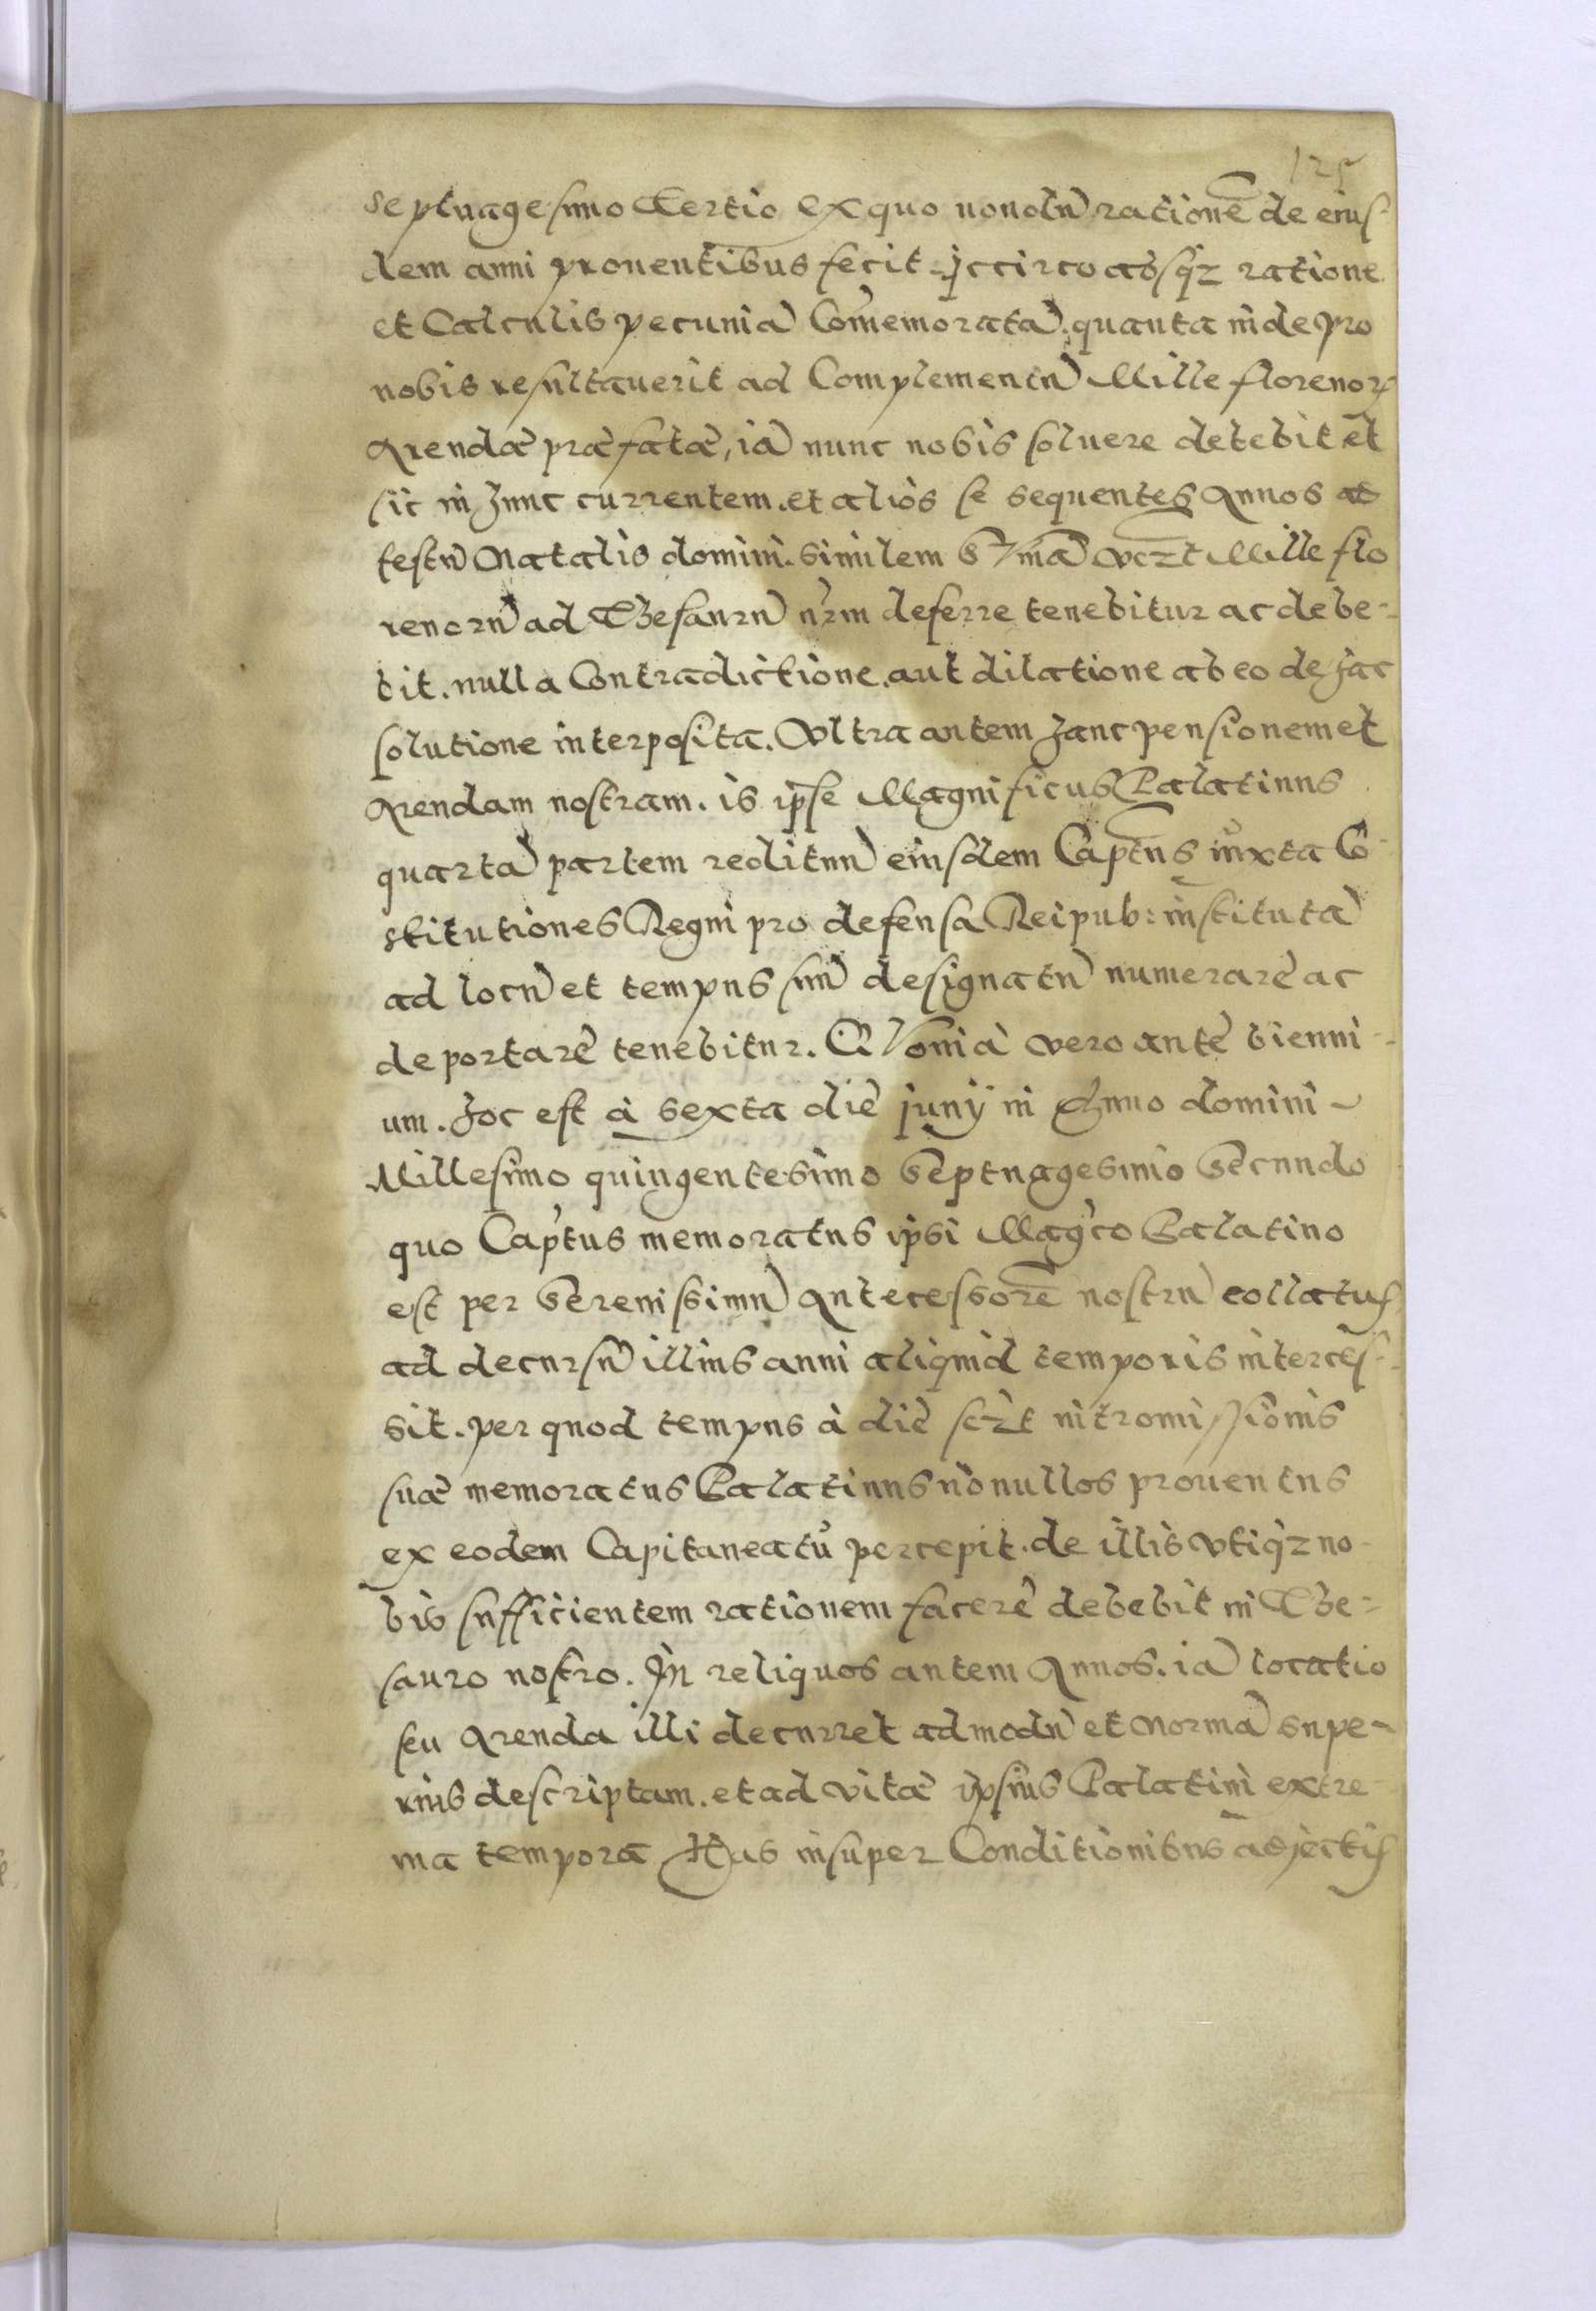 125
septuagesimo Tertio ex quo nondū rationē de eius-
dem anni prouentibus fecit. jccirco absq3 ratione
et Calculis pecuniā Com̄emoratā. quanta inde pro
nobis resultauerit ad Complementū Mille florenorꝝ
Arendæ præfatæ, iā nunc nobis soluere debebit et
sic in hunc currentem. et aliòs se sequentes Annos ad
festū Natalis domini. similem Sūmā vczt Mille flo
renorū ad Thesaurū nr̄m deferre tenebitur ac debe-
bit. nulla Contradictione. aut dilatione ab eo de hac
solutione interposita. Vltra autem hanc pensionem et
Arendam nostram. is ip̄se Magnificus Palatinus
quartā partem redituū eiusdem Capt̄us iuxta Cō-
stitutiones Regni pro defensa Reipub: institutā
ad locū et tempus suū designatū numerarè ac
deportarè tenebitur. Qōniā vero antè bienni-
um. hoc est à sexta diè junij in Anno domini
Millesimo quingentesimo Septuagesimo Secundo
quo Cap̄tus memoratus ipsi Maḡco Palatino
est per Serenissimū Antecessorē nostrū collatus
ad decursū illius anni aliquid temporis interces-
sit. per quod tempus à diè sczt intromissionis
suæ memoratus Palatinus nōnullos prouentus
ex eodem Capitaneatu percepit. de illis vtiq3 no-
bis sufficientem rationem facerè debebit in The-
sauro nostro. In reliquos autem Annos. iā locatio
seu Arenda illi decurret ad modū et Normā supe-
rius descriptam. et ad vitæ ipsius Palatini extre-
ma tempora Has insuper Conditionibus adjectis